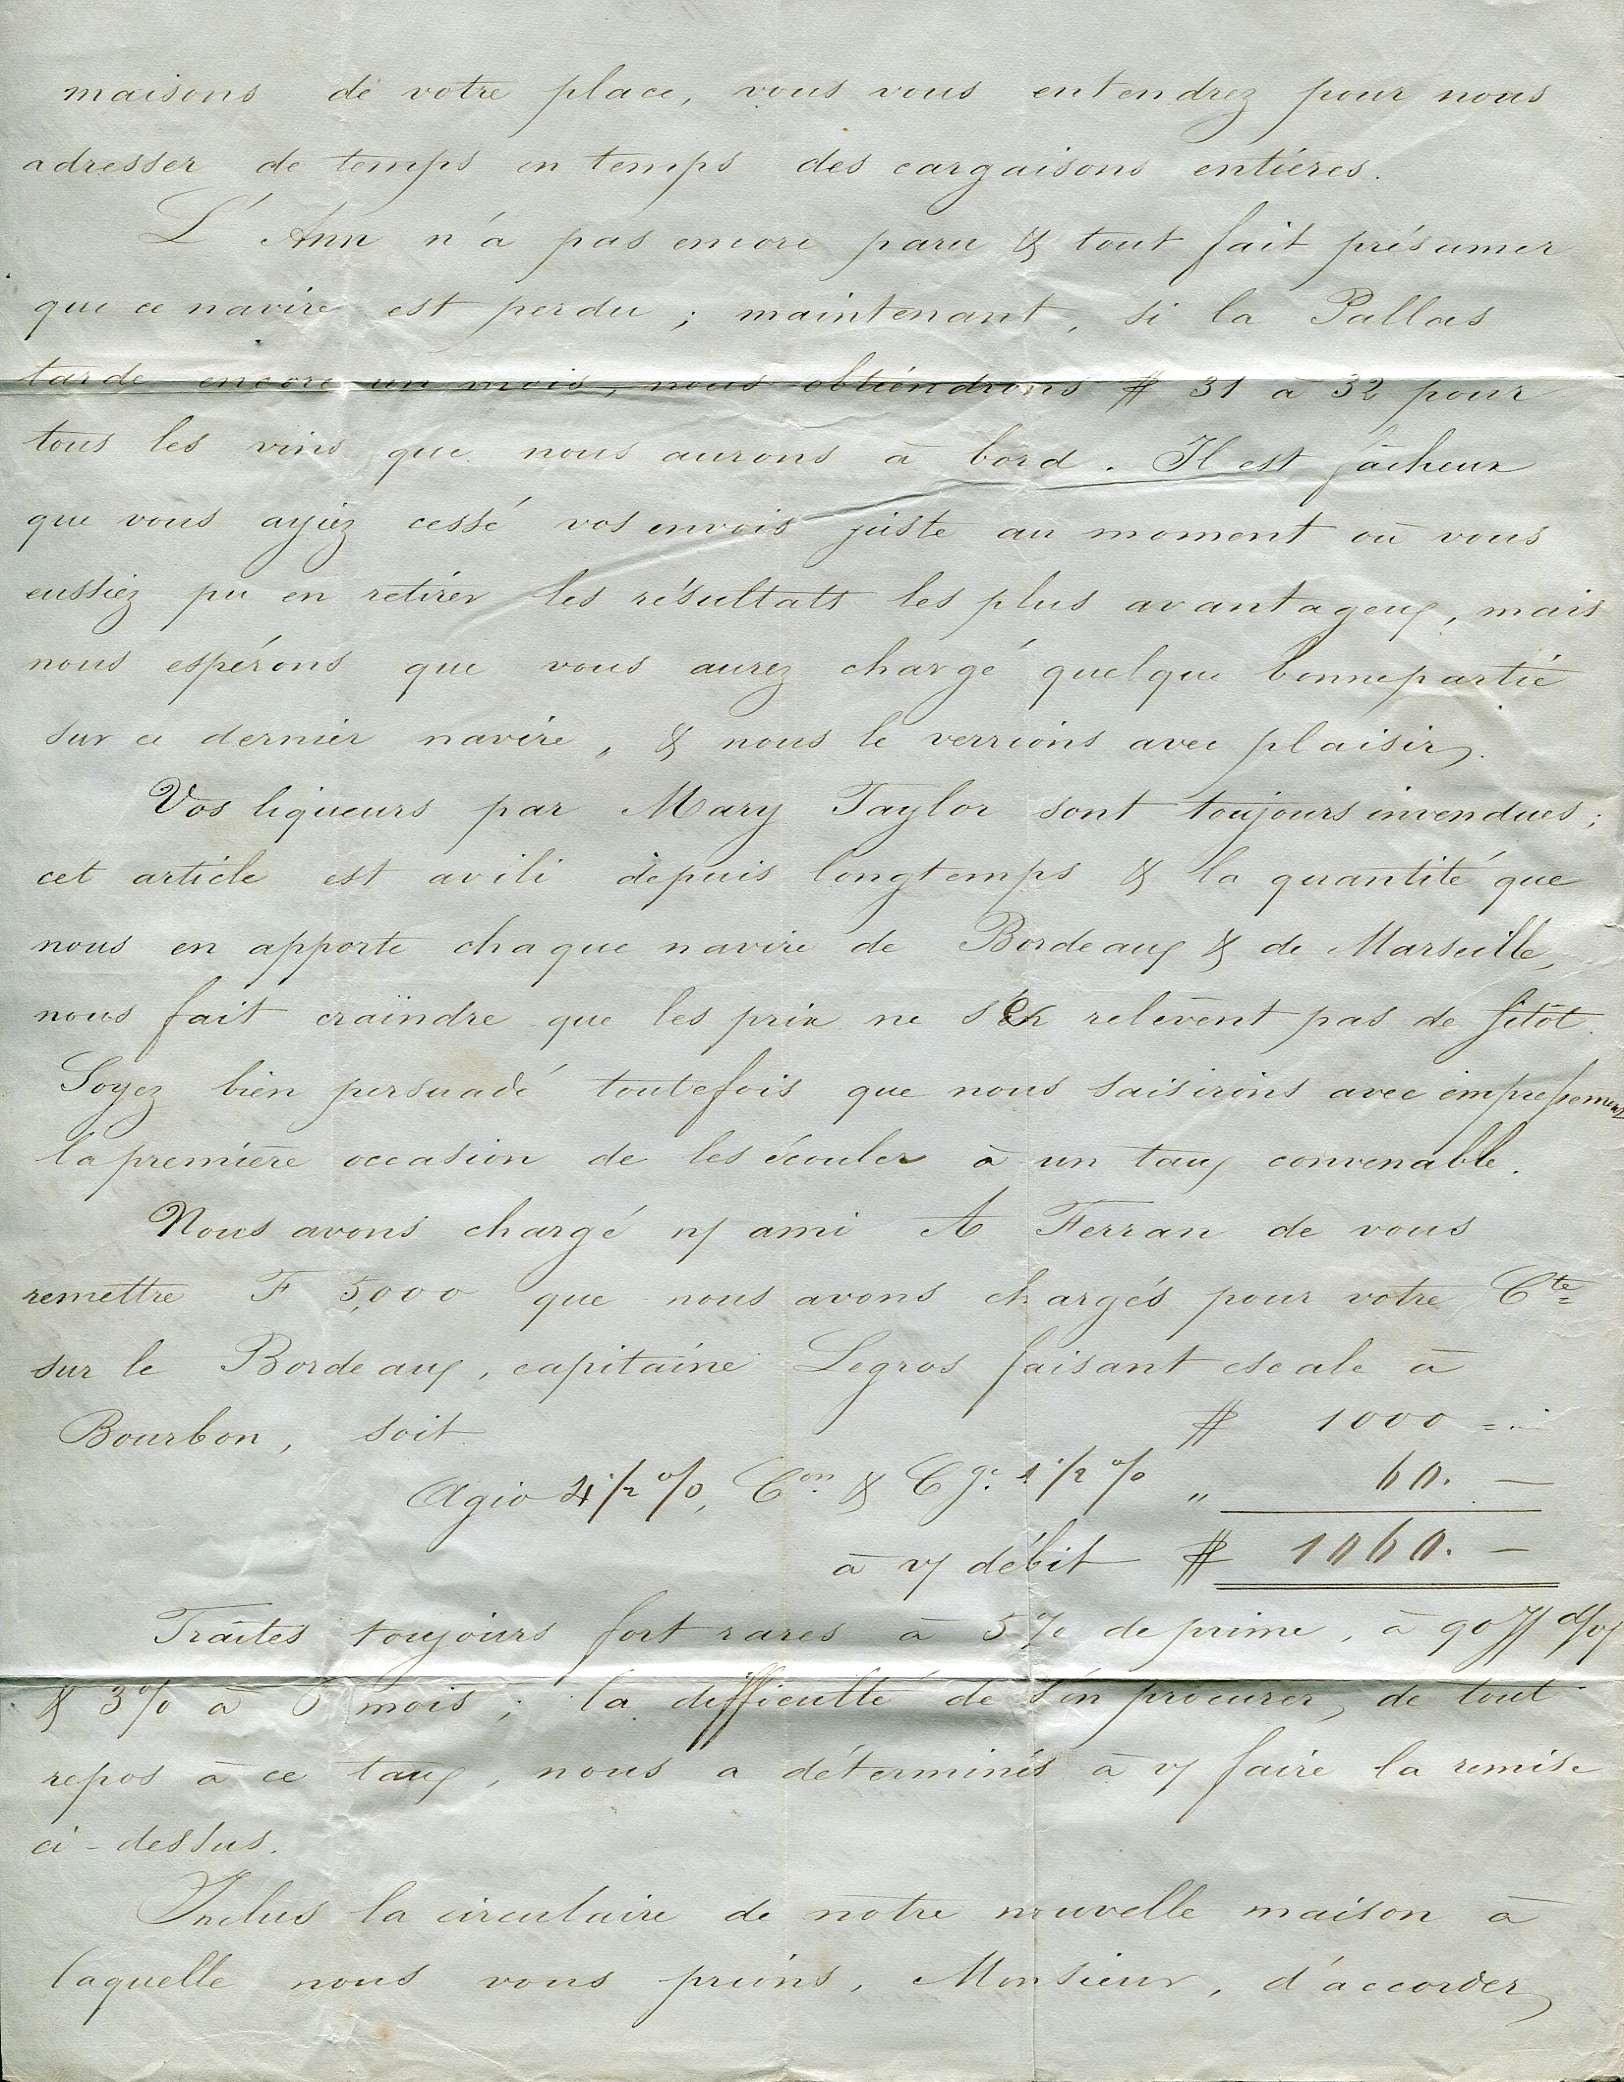 maisons de votre place, vous vous entendrez pour nous
adresser de temps en temps des cargaisons entières.
L'Ann n'a pas encore paru & tout fait présumer
que ce navire est perdu ; maintenant, si la Pallas
tarde encore un mois, nous obtiendrons $ 31 à 32 pour
tous les vins que nous aurons à bord. Il est fâcheux
que vous ayiez cessé vos envois juste au moment où vous
eussiez pu en retirer les résultats les plus avantageux, mais
nous espérons que vous aurez chargé quelque bonne partie
sur ce dernier navire, & nous le verrions avec plaisir.
Vos liqueurs par Mary Taylor sont toujours invendues ;
cet article est avili depuis longtemps & la quantité que
nous en apporte chaque navire de Bordeaux & de Marseille,
nous fait craindre que les prix ne s'en relèvent pas de sitôt.
Soyez bien persuadé toutefois que nous saisirons avec empressement
la première occasion de les écouler à un taux convenable.
Nous avons chargé n/ ami A Ferran de vous
remettre F 5,000 que nous avons chargés pour votre Cte
sur le Bordeaux, capitaine Legros faisant escale à
Bourbon, soit $ 1000 =
Agio 4 1/2 %, Con & Cge 1 1/2 % " 60. —
à v/ débit $ 1060. —
Traites toujours fort rares à 5 % de prime, à 90 j/ d/v/
& 3 % à 6 mois ; la difficulté de s'en procurer, de tout
repos à ce taux, nous a déterminés à v/ faire la remise
ci-dessus.
Inclus la circulaire de notre nouvelle maison à
laquelle nous vous prions, Monsieur, d'accorder